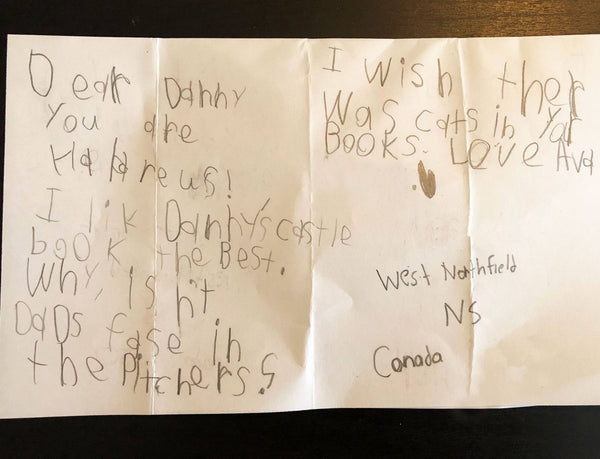 Dear Danny
You are
Halareus!
I lik Danny's castle
book the Best.
Why, is n't
DaDs fase in
the Pitchers?
I wish ther
was cats in Yor
BOOKS. LOVE Ava
West Northfield
NS
Canada